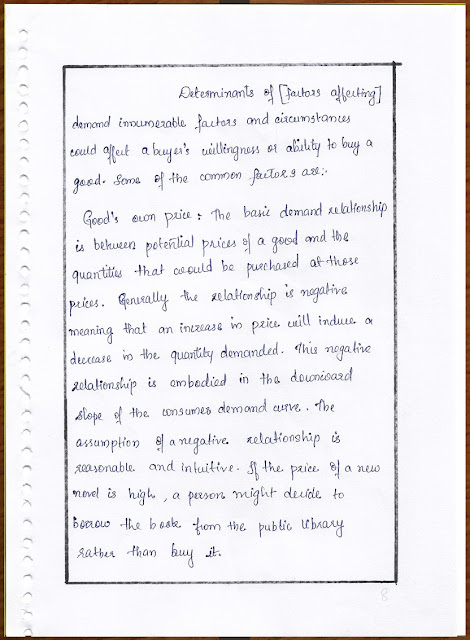 Determinants of [factors affecting]
demand innumerable factors and circumstances
could affect a buyer's willingness or ability to buy a
good. Some of the common factors are:-
Good's own price: The basic demand relationship
is between potential prices of a good and the
quantities that would be purchased at those
prices. Generally the relationship is negative
meaning that an increase in price will induce a
decrease in the quantity demanded. This negative
relationship is embodied in the downward
slope of the consumer demand curve. The
assumption of a negative relationship is
reasonable and intuitive. If the price of a new
novel is high, a person might decide to
borrow the book from the public library
rather than buy it.
8